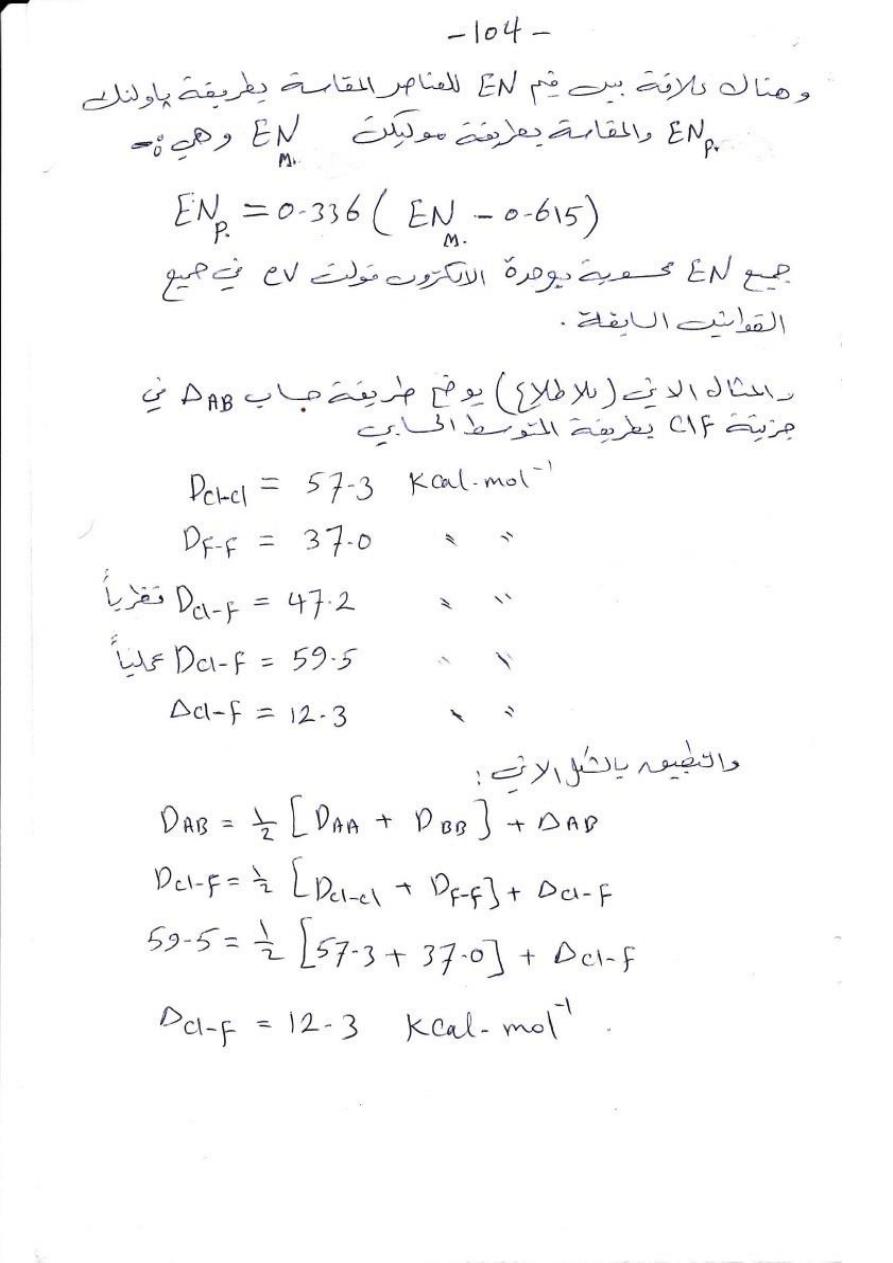 -104-
وهناك علاقة بين قيم EN للعناصر المقاسة بطريقة باولنك
EN P. والمقاسة بطريقة موليكن EN M. وهي :-
EN P. = 0.336 ( EN M. - 0.615)
جميع EN محسوبة بوحدة الالكترون فولت ev في جميع
القوانين السابقة .
والمثال الاتي (للاطلاع) يوضح طريقة حساب ΔAB في
جزيئة ClF بطريقة المتوسط الحسابي
DCl-Cl = 57.3 Kcal.mol⁻¹
DF-F = 37.0 〃 〃
تقريباً DCl-F = 47.2 〃 〃
عملياً DCl-F = 59.5 〃 〃
ΔCl-F = 12.3 〃 〃
والتطبيق بالشكل الاتي :
DAB = 1/2 [DAA + DBB] + ΔAB
DCl-F = 1/2 [DCl-Cl + DF-F] + ΔCl-F
59.5 = 1/2 [57.3 + 37.0] + ΔCl-F
ΔCl-F = 12.3 Kcal-mol⁻¹ .